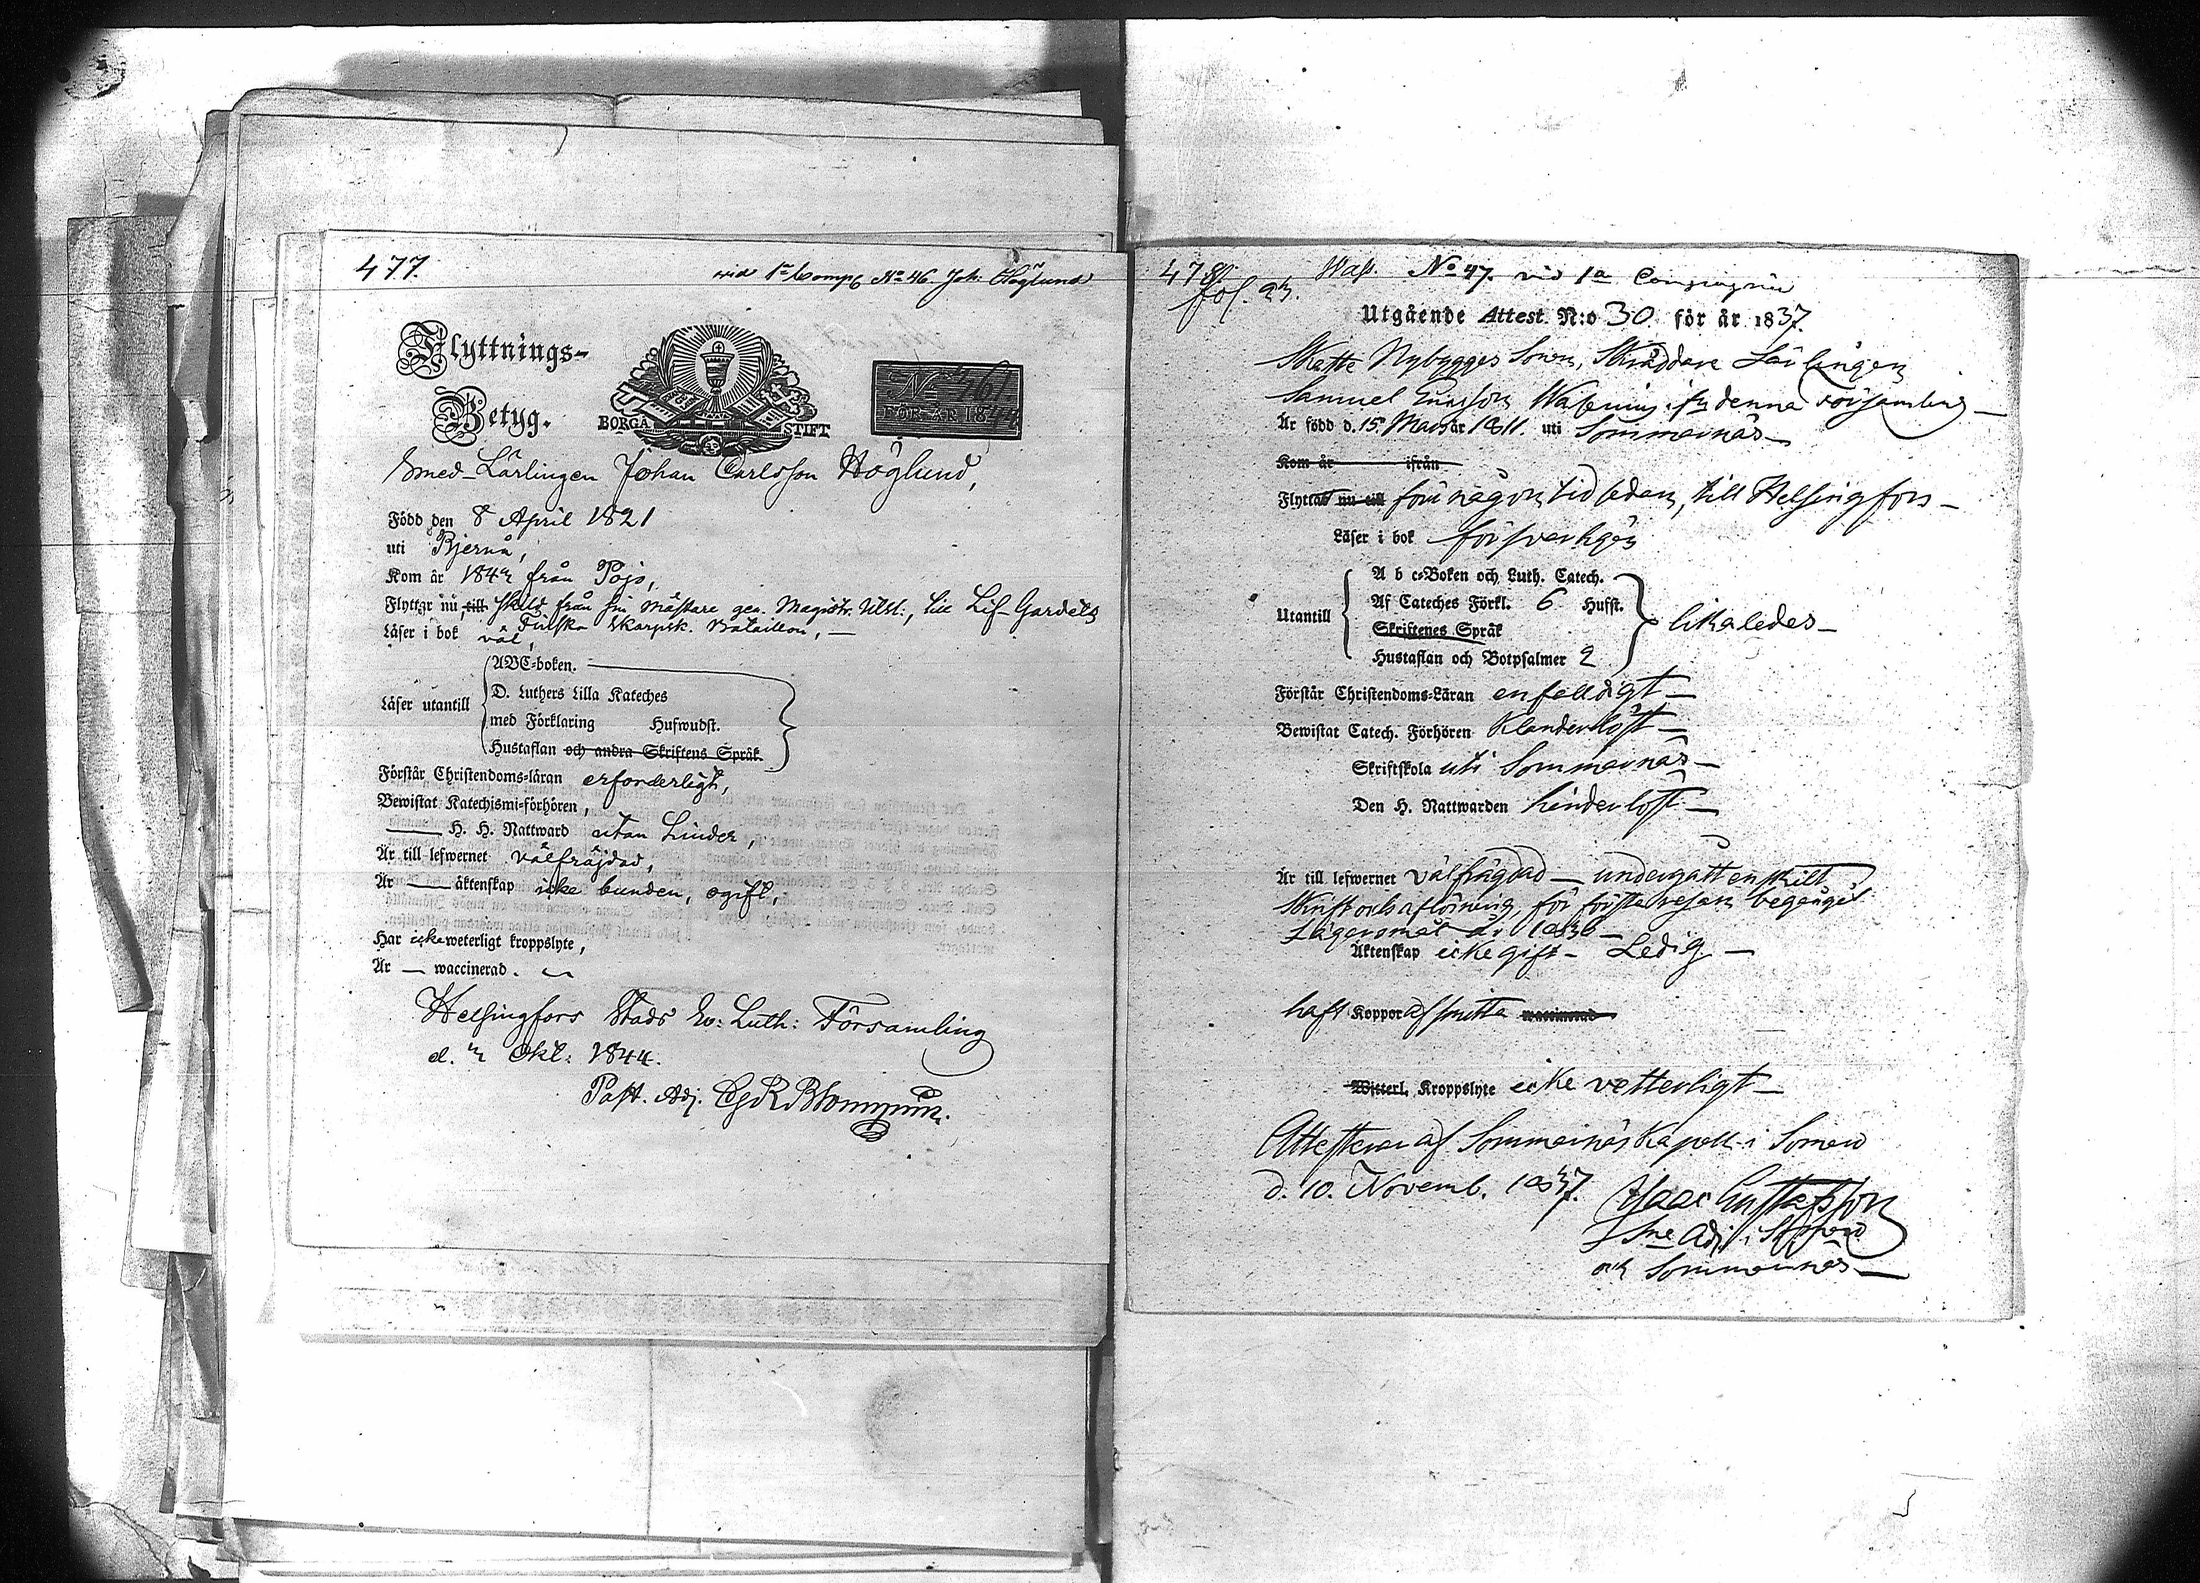 477.
vid 1a Comp. No 46. Joh. Höglund
Flyttnings-
Betyg.
BORGÅ STIFT
No 461
FÖR ÅR 1844
Smed-Lärlingen Johan Carlsson Höglund,
Född den 8 April 1821
uti Bjernå,
Kom år 1842 från Pojo,
Flyttar nu, till skild från sin mästare gen. Magistr. Utsl:, till Lif-Gardets
Finska Skarpsk. Bataillon, —
Läser i bok väl,
Läser utantill
ABC-boken.
D. Luthers Lilla Kateches
med Förklaring Hufwudst.
Hustaflan och andra Skriftens Språk.
Förstår Christendoms-läran erforderligt,
Bewistat Katechismi-förhören,
— H. H. Nattward utan hinder,
Är till lefwernet välfräjdad,
Är — äktenskap icke bunden, ogift,
Har icke weterligt kroppslyte,
Är — waccinerad.
Helsingfors Stads Ev: Luth: Församling
d. 2 Okt: 1844.
Past. Adj.
478
fol. 23.
No 47. vid 1a Compagniet
Utgående Attest N:o 30 för år 1837.
Skatte Nybygges Sonen, Skräddare Lärlingen
Samuel Wasenius ifrån denna Församling —
Är född d. 15. Mars år 1811. uti Sommarnäs —
Kom år ifrån
Flyttad nu till före någon tid sedan, till Helsingfors —
Läser i bok försvarligen
Utantill
A b c-Boken och Luth. Catech.
Af Cateches Förkl. 6 Hufst.
Skriftenes Språk
Hustaflan och Botpsalmer 2
likaledes —
Förstår Christendoms-Läran enfelldigt —
Bewistat Catech. Förhören Klanderlöst —
Skriftskola uti Sommarnäs —
Den H. Nattwarden hinderlöst —
Är till lefwernet välfrägdad — undergått enskilt
Skrift och aflösning, för första resan begånget
Lägersmål år 1836 —
Äktenskap icke gift — Ledig —
haft Koppor af smitta waccinerad
Witterl. Kroppslyte icke vetterligt —
Attesterar af Sommarnäs Kapell i Somero
d. 10. Novemb. 1837.
Isaac Gustafsson
Adj. i Somero
och Sommarnäs —